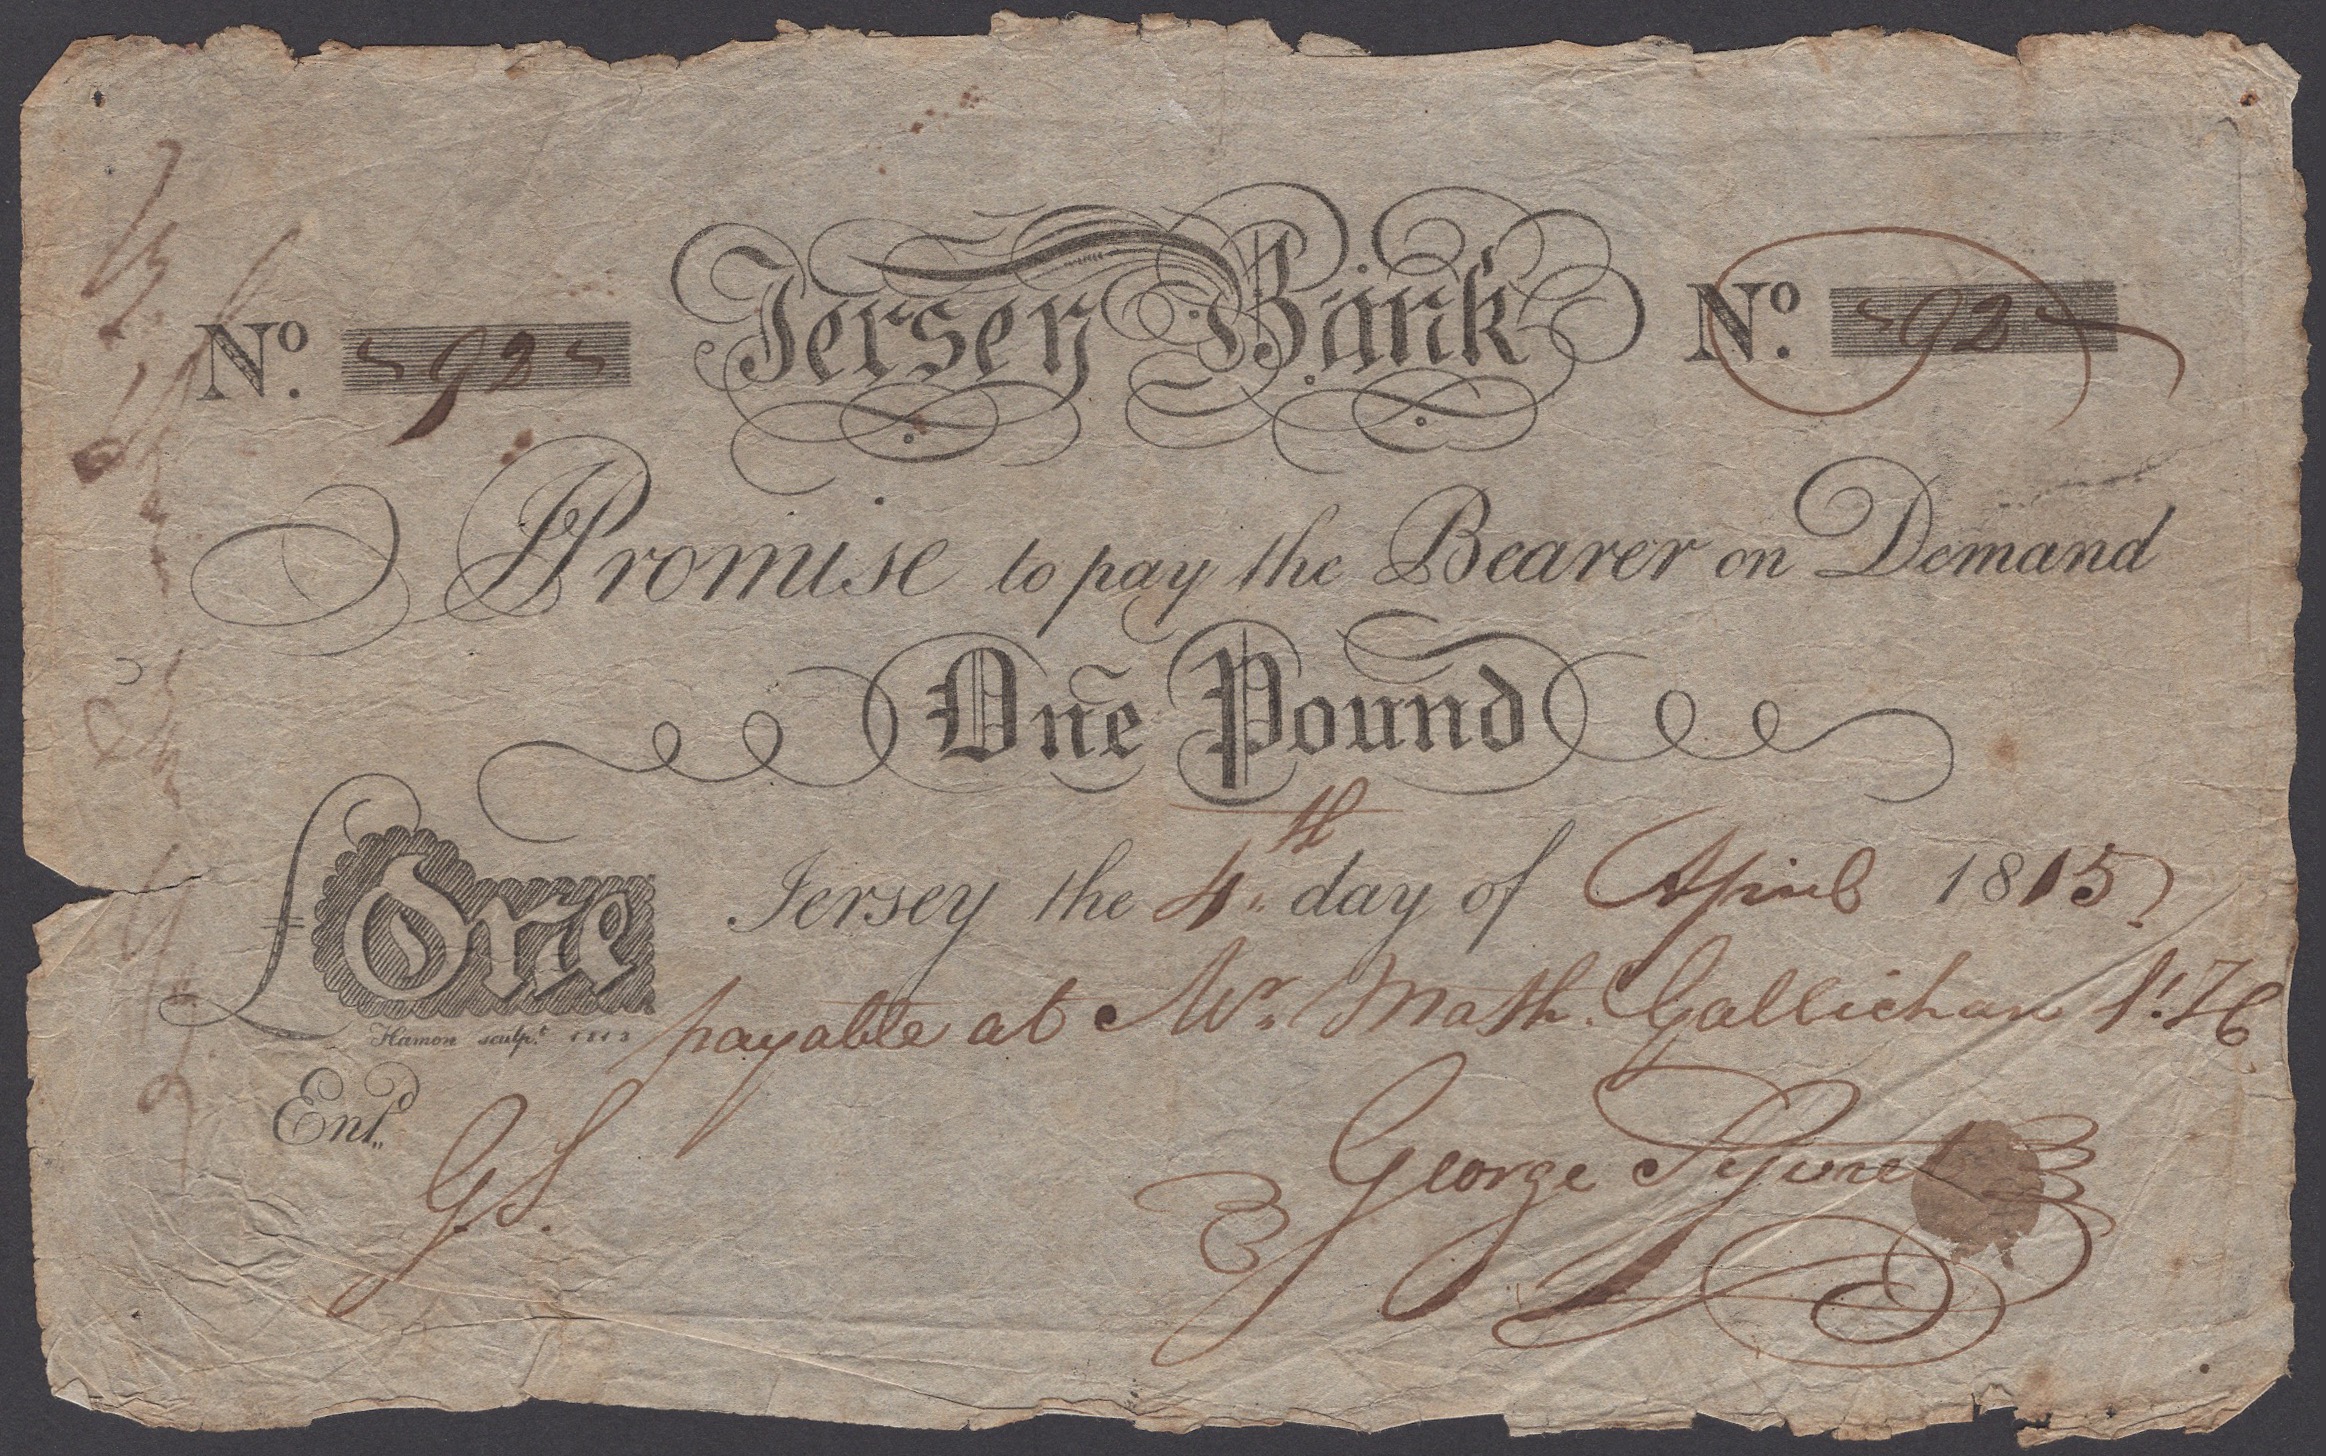 Jersey Bank
No. 92
No. 92
I Promise to pay the Bearer on Demand
One Pound
£ One
Jersey the 4th day of April 1815
payable at Mr. Math. Gallichan
Hamon sculpt. 1813
Entd.
G.S.
George